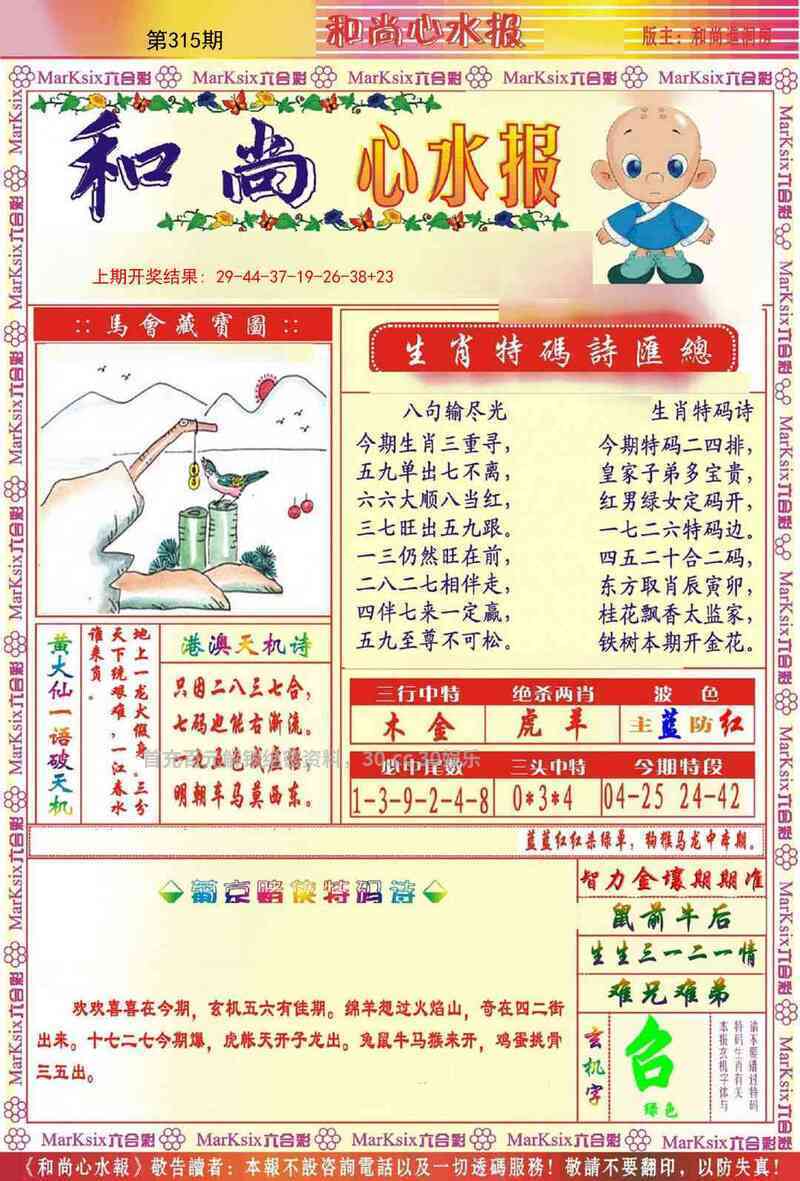 第315期
和尚心水报
版主：和尚進洞房
MarKsix六合彩 MarKsix六合彩 MarKsix六合彩 MarKsix六合彩 MarKsix六合彩
和尚 心水报
上期开奖结果：29-44-37-19-26-38+23
::馬會藏寶圖::
生肖特碼詩匯總
八句输尽光
今期生肖三重寻，
五九单出七不离，
六六大顺八当红，
三七旺出五九跟。
一三仍然旺在前，
二八二七相伴走，
四伴七来一定赢，
五九至尊不可松。
生肖特码诗
今期特码二四排，
皇家子弟多宝贵，
红男绿女定码开，
一七二六特码边。
四五二十合二码，
东方取肖辰寅卯，
桂花飘香太监家，
铁树本期开金花。
黄大仙一语破天机
地上一龙火假身。三分
天下统艰难，一江春水
谁来负。
港澳天机诗
只因二八三七合，
七码迎能右渐流。
明朝车马莫西东。
首充百元解锁终极资料，30.cc 30娱乐
三行中特
木 金
绝杀两肖
虎 羊
波 色
主蓝防红
必中尾数
1-3-9-2-4-8
三头中特
0*3*4
今期特段
04-25 24-42
蓝蓝红红杀绿单，狗猴马龙中本期。
葡京赌侠特码诗
欢欢喜喜在今期，玄机五六有佳期。绵羊想过火焰山，奇在四二街
出来。十七二七今期爆，虎帐天开子龙出。兔鼠牛马猴来开，鸡蛋挑骨
三五出。
智力金壤期期准
鼠前牛后
生生三一二一情
难兄难弟
玄机字
召
绿色
请不要错过特码
特码生肖有关
本报玄机字体与
MarKsix六合彩 MarKsix六合彩 MarKsix六合彩 MarKsix六合彩 MarKsix六合彩
《和尚心水報》敬告讀者：本報不設咨詢電話以及一切透碼服務！敬請不要翻印，以防失真！